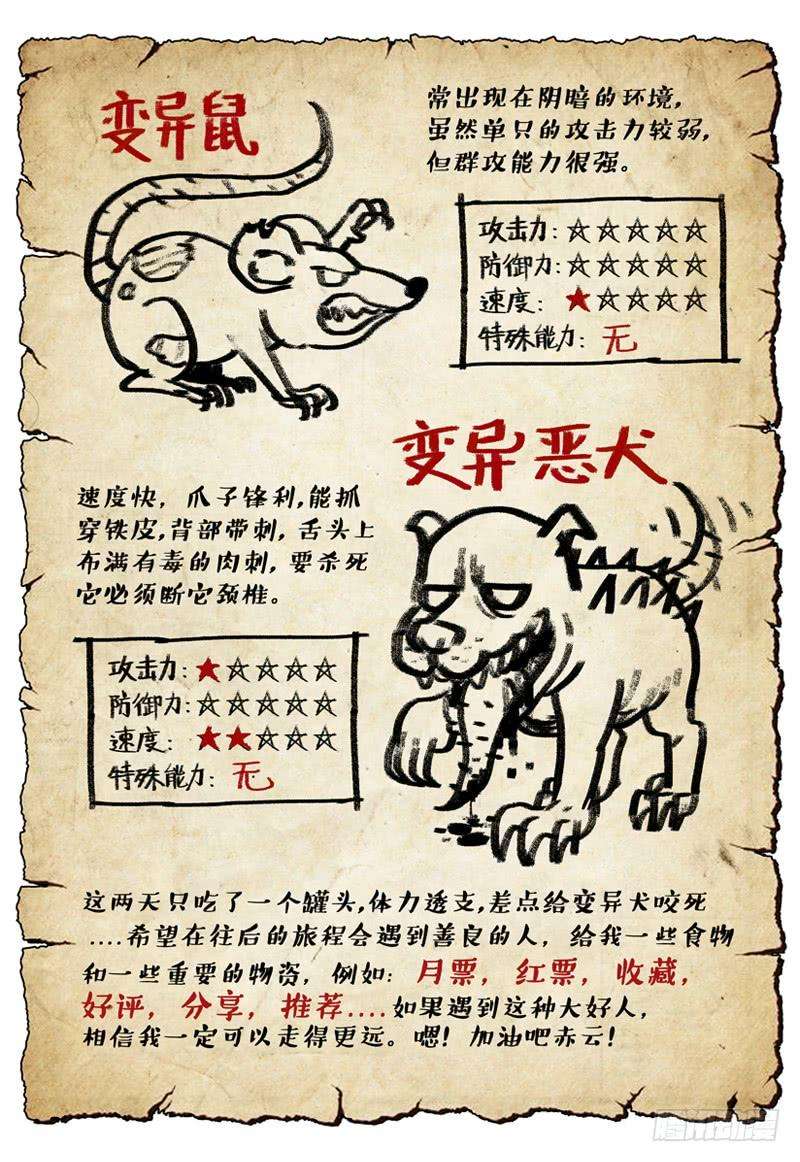 变异鼠
常出现在阴暗的环境,
虽然单只的攻击力较弱,
但群攻能力很强。
攻击力: ☆☆☆☆☆
防御力: ☆☆☆☆☆
速度: ★☆☆☆☆
特殊能力: 无
变异恶犬
速度快, 爪子锋利,能抓
穿铁皮,背部带刺, 舌头上
布满有毒的肉刺, 要杀死
它必须断它颈椎。
攻击力: ★☆☆☆☆
防御力: ☆☆☆☆☆
速度: ★★☆☆☆
特殊能力: 无
这两天只吃了一个罐头,体力透支,差点给变异犬咬死
....希望在往后的旅程会遇到善良的人, 给我一些食物
和一些重要的物资, 例如: 月票, 红票, 收藏,
好评, 分享, 推荐....如果遇到这种大好人,
相信我一定可以走得更远。嗯! 加油吧赤云!